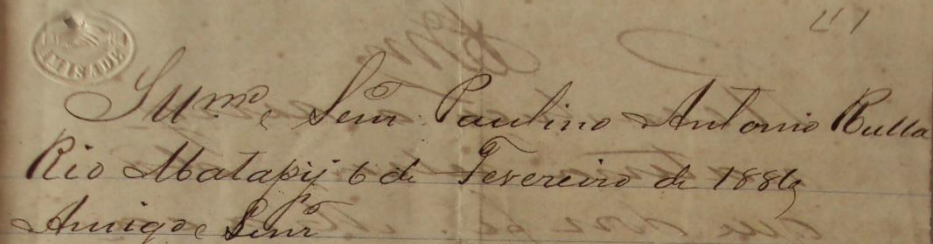 AMISADE
Illmo. Senr. Paulino Antonio Rulla
Rio Matapÿ 6 de Fevereiro de 1886
Amigo e Senr